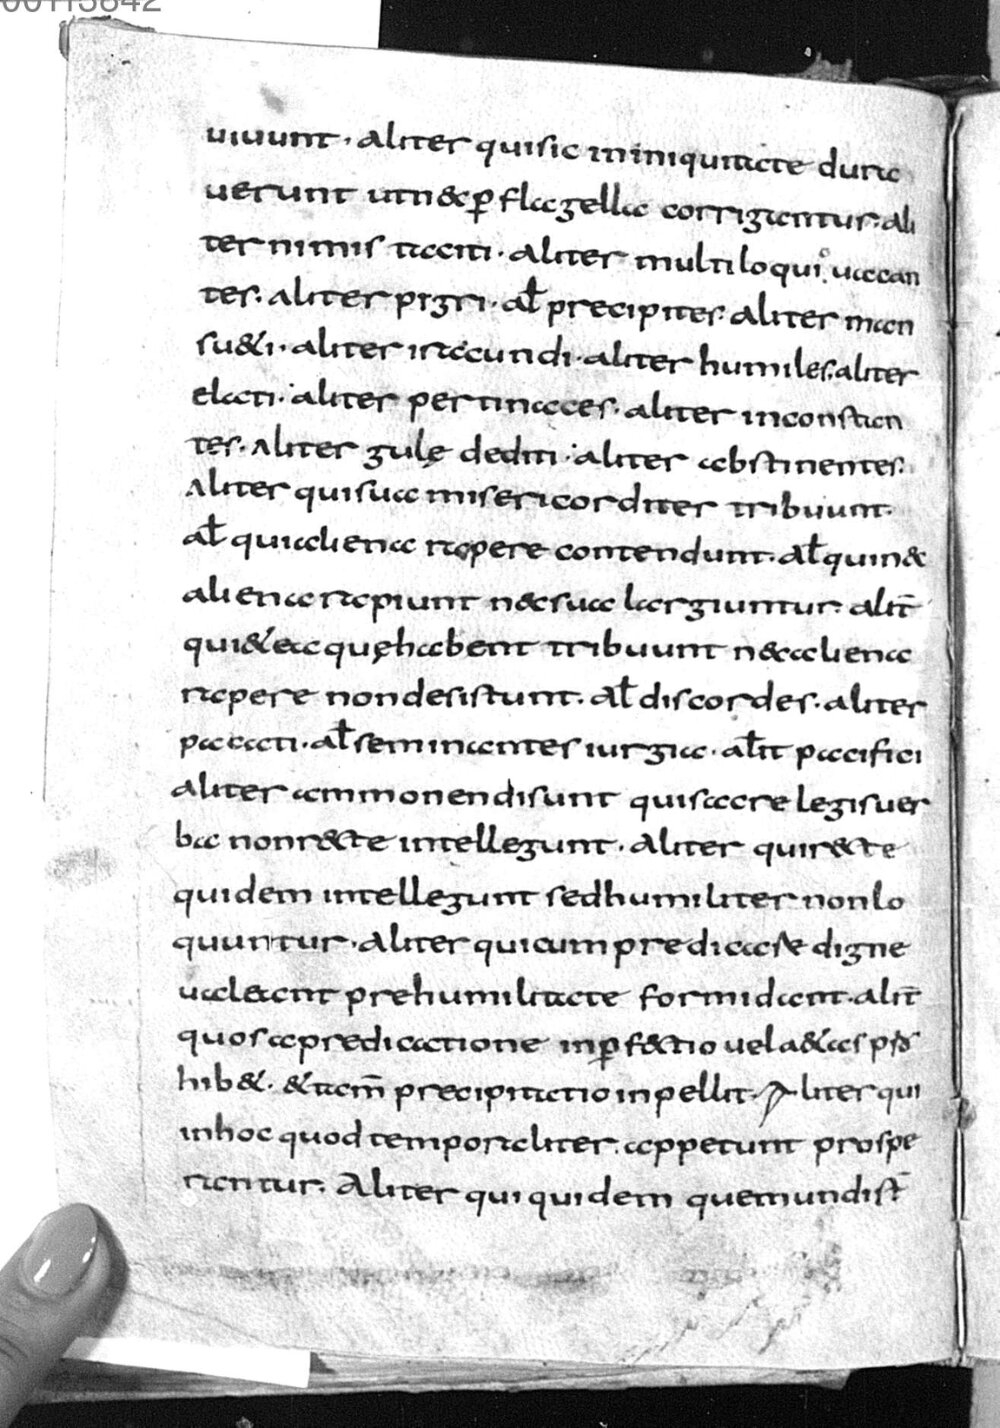 00113842
uiuunt · aliter qui sic in iniquitate dura
uerunt ut n& p̱ flagella corrigantur · ali
ter nimis taciti · aliter multiloqui · uacan
tes · aliter pigri · al̄ precipites · aliter man
su&i · aliter iracundi · aliter humiles · aliter
elati · aliter pertinaces · aliter inconstan
tes · Aliter gulę dediti · aliter abstinentes ·
Aliter qui sua misericorditer tribuunt ·
al̄ qui aliena rapere contendunt · Al̄ qui n&
aliena rapiunt n&c sua largiuntur · alit̄
qui & ea quę habent tribuunt n& aliena
rapere non desistunt · Al̄ discordes · aliter
pacati · al̄ seminantes iurgia · al̄it pacifici
aliter ammonendi sunt qui sacre legis uer
ba non r&cte intellegunt · Aliter qui r&cte
quidem intellegunt sed humiliter non lo
quuntur · Aliter qui cum predicasse digne
ualeant pre humilitate formidant · alit̄
quos a predicatione inp̱f&tio uel a&as
hib& · & tam̄ precipitatio inpellit · Aliter qui
in hoc quod temporaliter appetunt prospe
rantur · Aliter qui quidem que mundi st̄